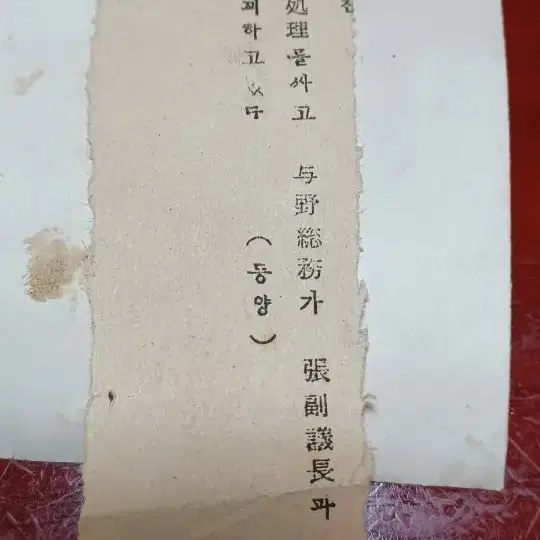 処理를싸고 与野総務가 張副議長과
꾀하고 있다 (동양)